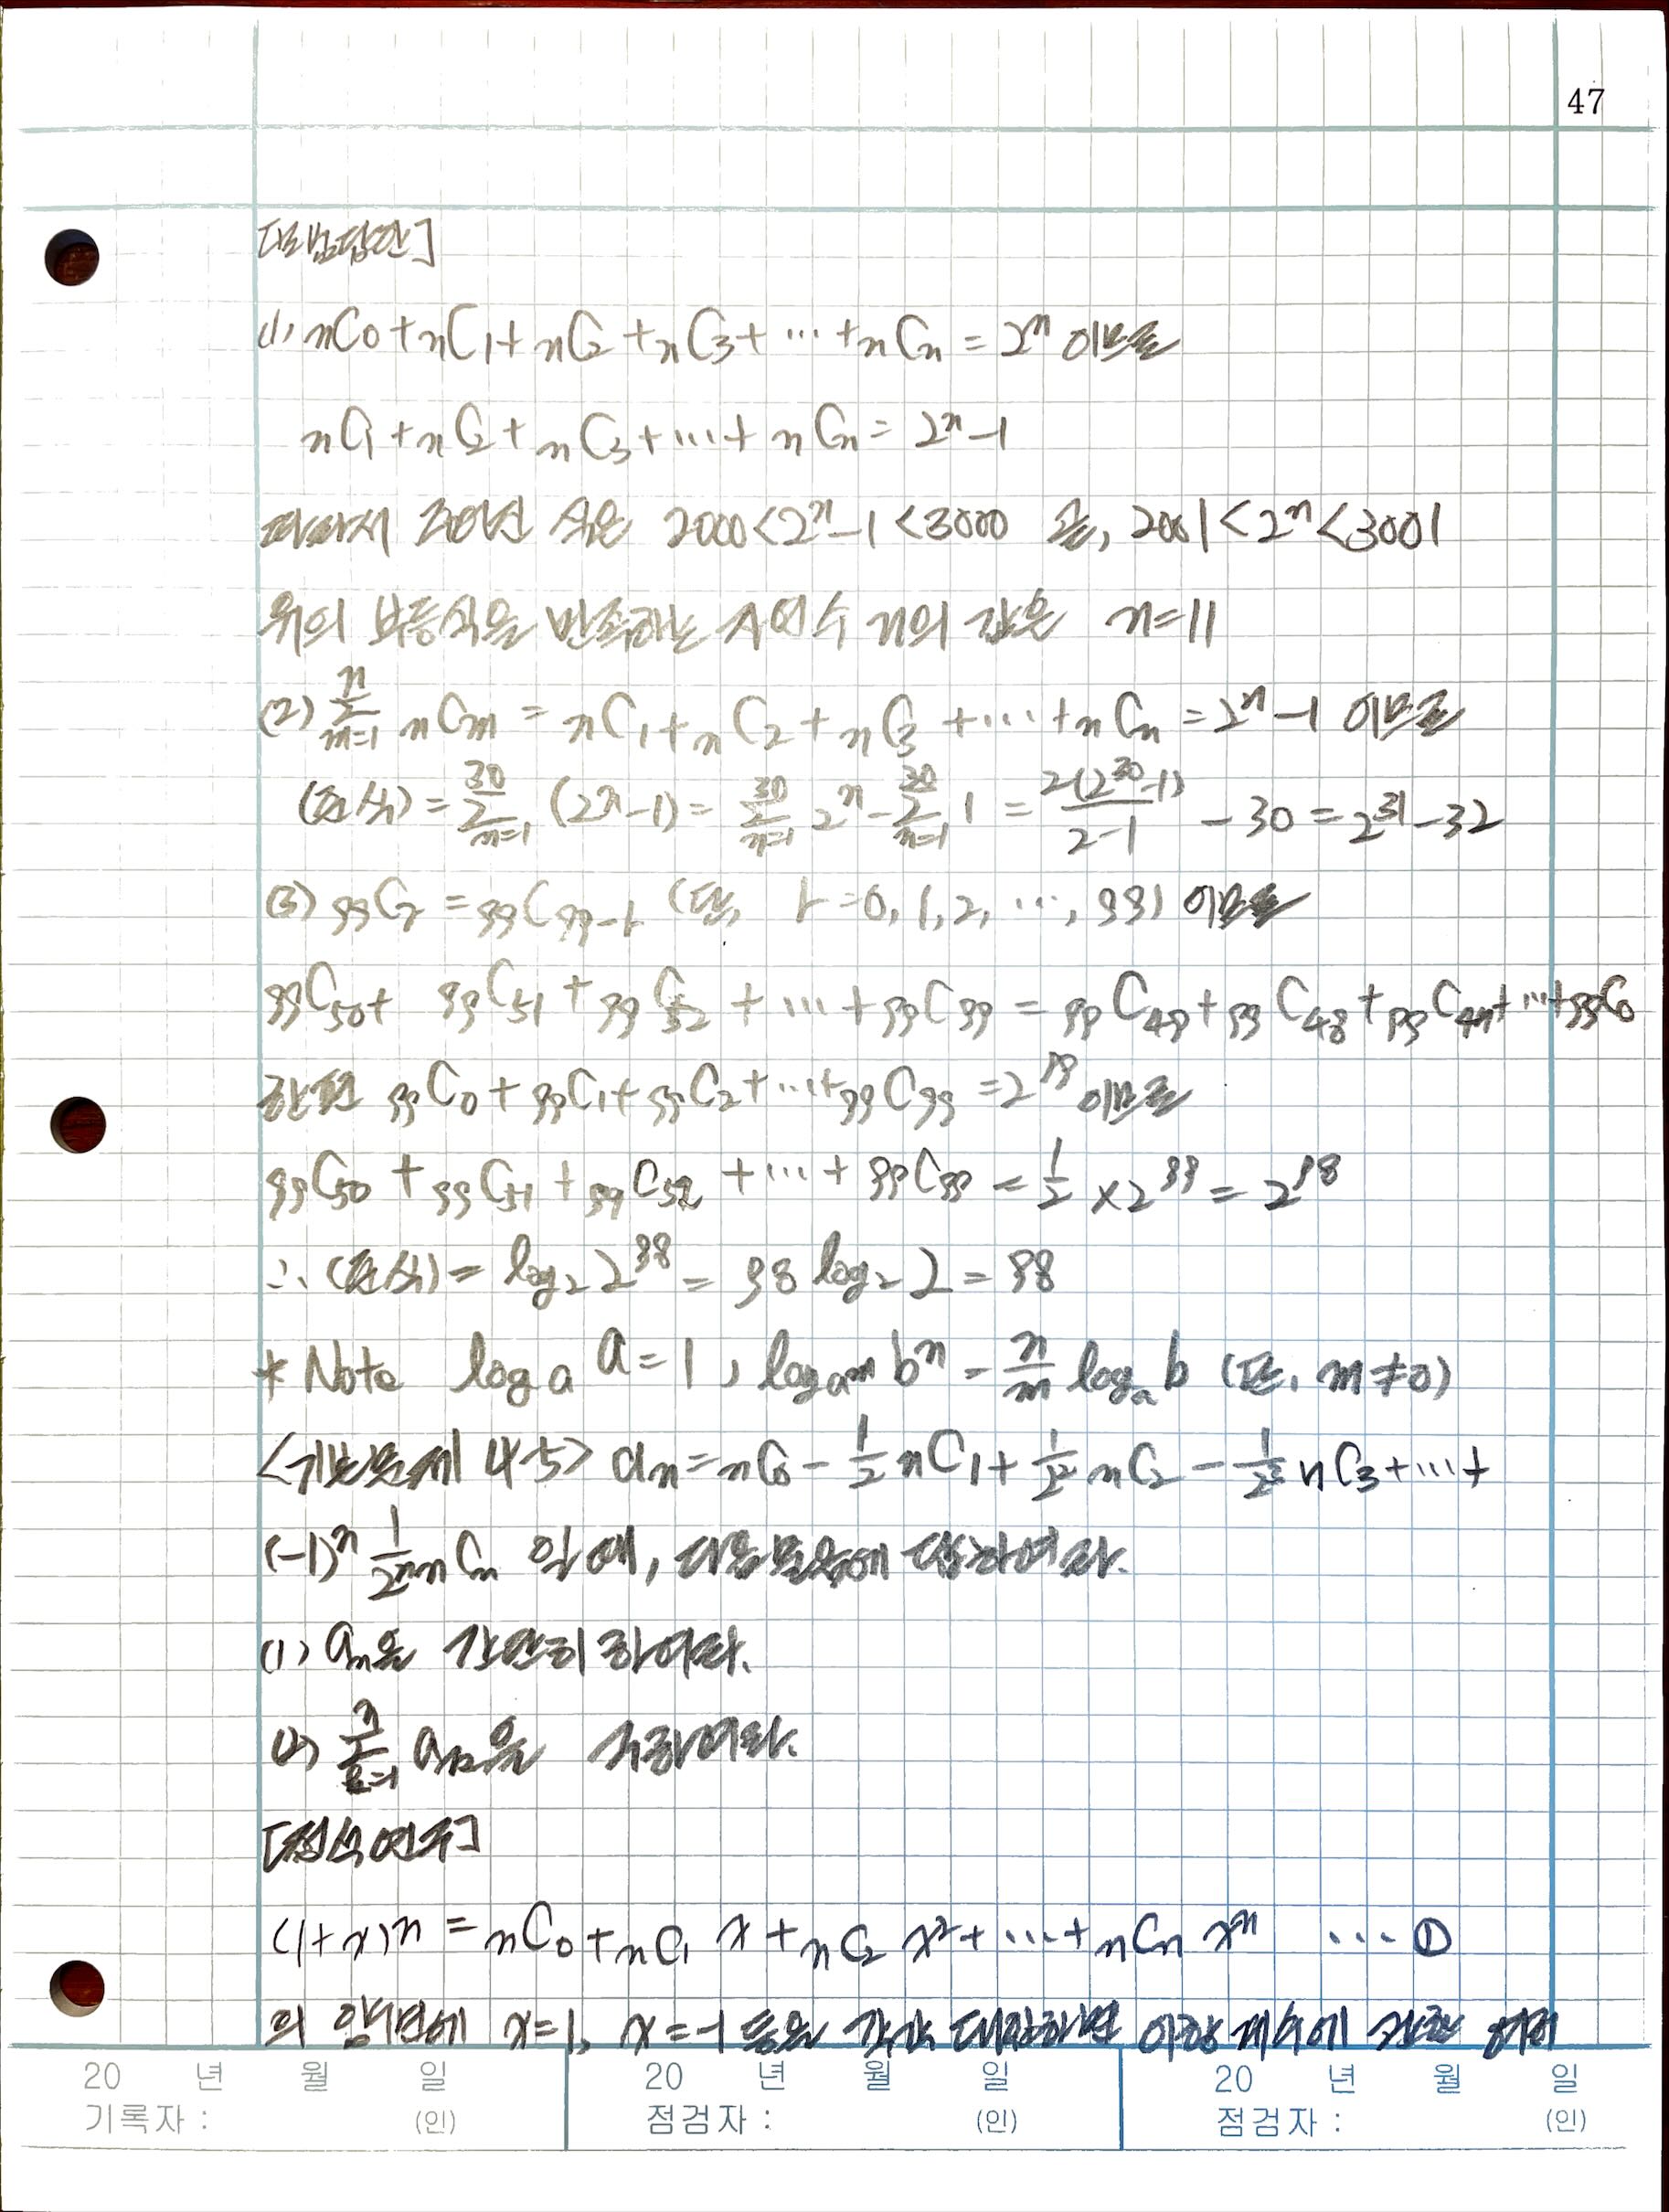 47
[모범답안]
(1) nC0 + nC1 + nC2 + nC3 + ··· + nCn = 2^n 이므로
nC1 + nC2 + nC3 + ··· + nCn = 2^n - 1
따라서 주어진 식은 2000 < 2^n - 1 < 3000 곧, 2001 < 2^n < 3001
위의 부등식을 만족하는 자연수 n의 값은 n = 11
(2) Σ_{m=1}^{n} nCm = nC1 + nC2 + nC3 + ··· + nCn = 2^n - 1 이므로
(준식) = Σ_{n=1}^{30} (2^n - 1) = Σ_{n=1}^{30} 2^n - Σ_{n=1}^{30} 1 = 2(2^30 - 1)/(2-1) - 30 = 2^31 - 32
(3) 99Cr = 99C99-r (단, r = 0, 1, 2, ···, 99) 이므로
99C50 + 99C51 + 99C52 + ··· + 99C99 = 99C49 + 99C48 + 99C47 + ··· + 99C0
한편 99C0 + 99C1 + 99C2 + ··· + 99C99 = 2^99 이므로
99C50 + 99C51 + 99C52 + ··· + 99C99 = 1/2 × 2^99 = 2^98
∴ (준식) = log_2 2^98 = 98 log_2 2 = 98
* Note log_a a = 1, log_{a^m} b^n = n/m log_a b (단, m ≠ 0)
<기본문제 4-5> an = nC0 - 1/2 nC1 + 1/2^2 nC2 - 1/2^3 nC3 + ··· +
(-1)^n 1/2^n nCn 일 때, 다음 물음에 답하여라.
(1) an을 간단히 하여라.
(2) Σ_{k=1}^{n} ak을 구하여라.
[정석연구]
(1+x)^n = nC0 + nC1 x + nC2 x^2 + ··· + nCn x^n ··· ①
의 양변에 x = 1, x = -1 등을 각각 대입하면 이항계수에 관한 여러
20 년 월 일 20 년 월 일 20 년 월 일
기록자 : (인) 점검자 : (인) 점검자 : (인)